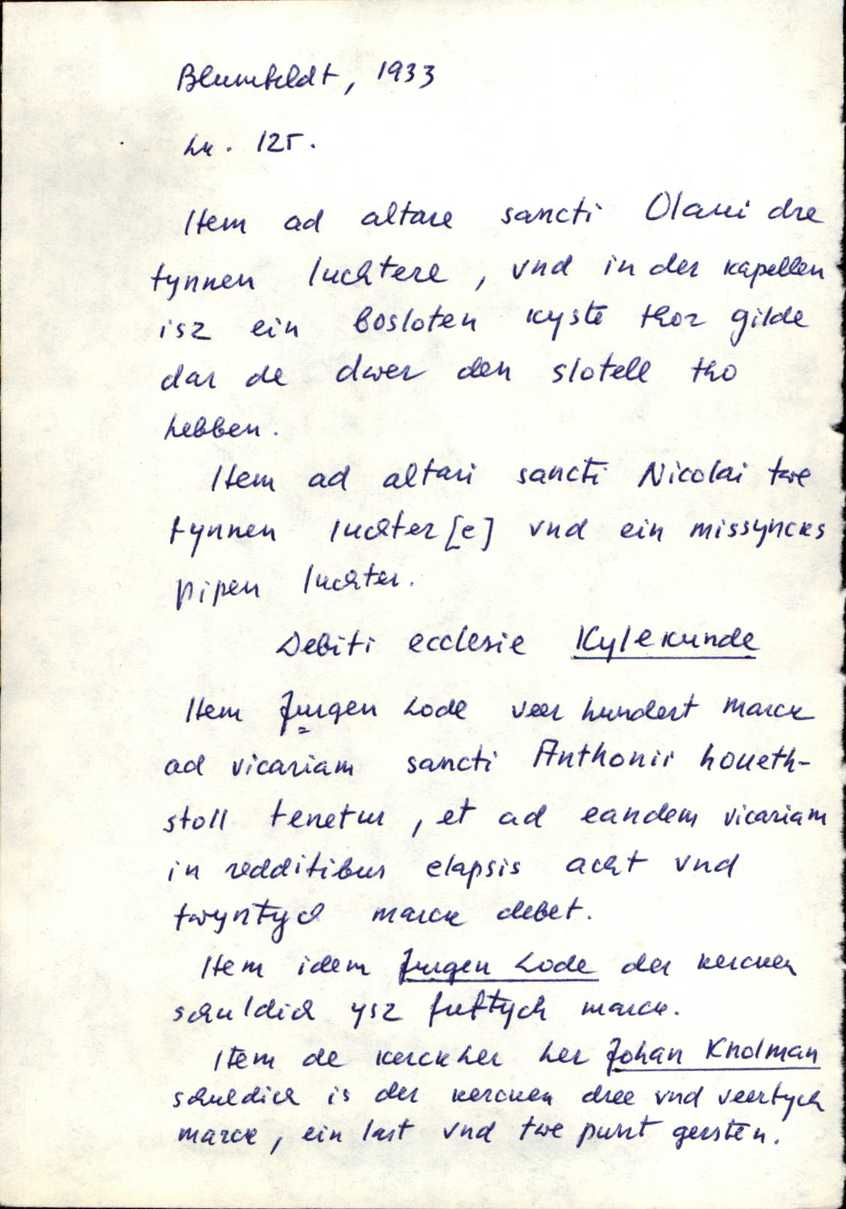 Blumfeldt, 1933
Lk. 125.
Item ad altare sancti Olaui dre
tynnen luchtere, vnd in der kapellen
isz ein bosloten kyste thor gilde
dar de dwer den slotell tho
hebben.
Item ad altari sancti Nicolai twe
tynnen luchter[e] vnd ein missyncks
pipen luchter.
Debiti ecclesie Kylekunde
Item Jurgen Lode veer hundert marck
ad vicariam sancti Anthonii houeth-
stoll tenetur, et ad eandem vicariam
in redditibus elapsis acht vnd
twyntych marck debet.
Item idem Jurgen Lode der kercken
schuldich ysz fuftych marck.
Item de kerckher her Johan Knolman
schuldich is der kercken dree vnd veertych
marck, ein last vnd twe punt gersten.